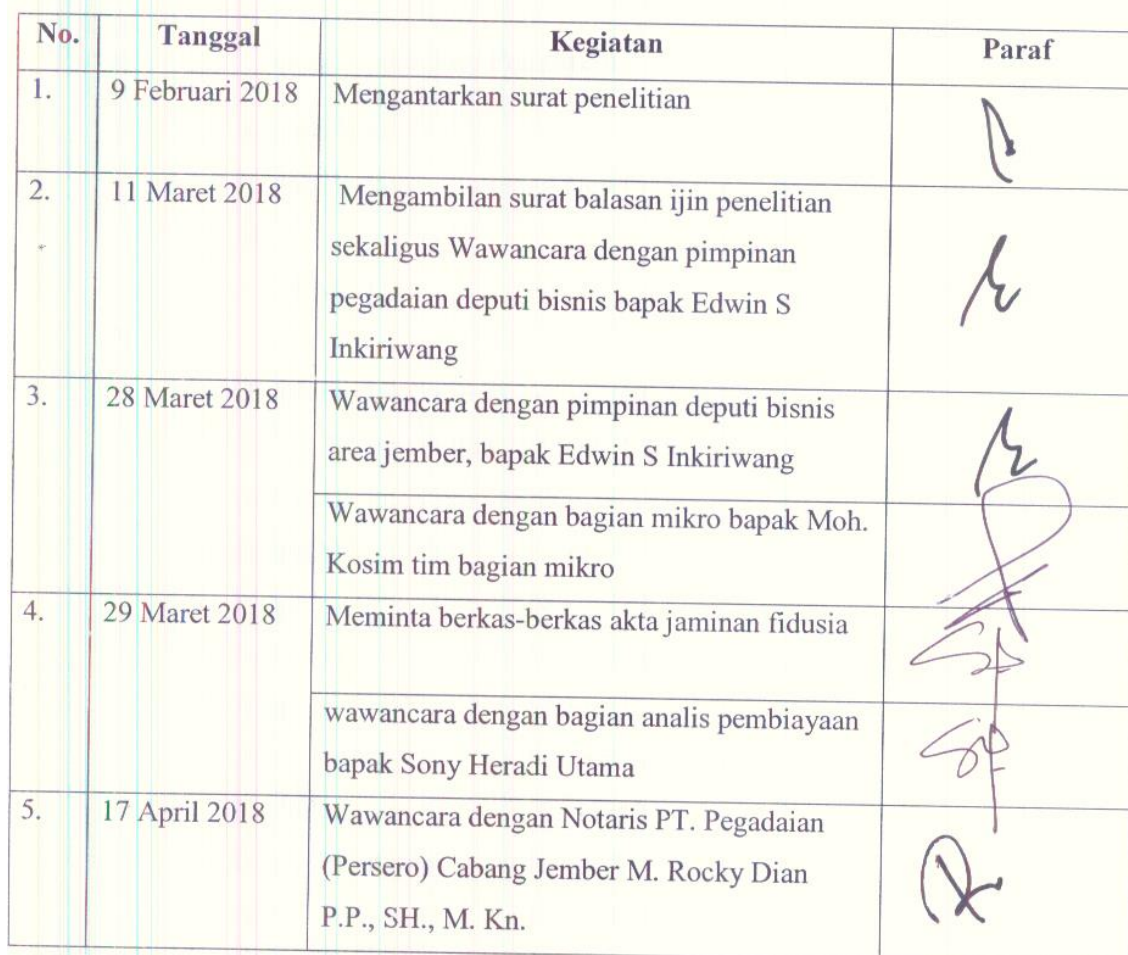 No. Tanggal Kegiatan Paraf
1. 9 Februari 2018 Mengantarkan surat penelitian
2. 11 Maret 2018 Mengambilan surat balasan ijin penelitian
sekaligus Wawancara dengan pimpinan
pegadaian deputi bisnis bapak Edwin S
Inkiriwang
3. 28 Maret 2018 Wawancara dengan pimpinan deputi bisnis
area jember, bapak Edwin S Inkiriwang
Wawancara dengan bagian mikro bapak Moh.
Kosim tim bagian mikro
4. 29 Maret 2018 Meminta berkas-berkas akta jaminan fidusia
wawancara dengan bagian analis pembiayaan
bapak Sony Heradi Utama
5. 17 April 2018 Wawancara dengan Notaris PT. Pegadaian
(Persero) Cabang Jember M. Rocky Dian
P.P., SH., M. Kn.